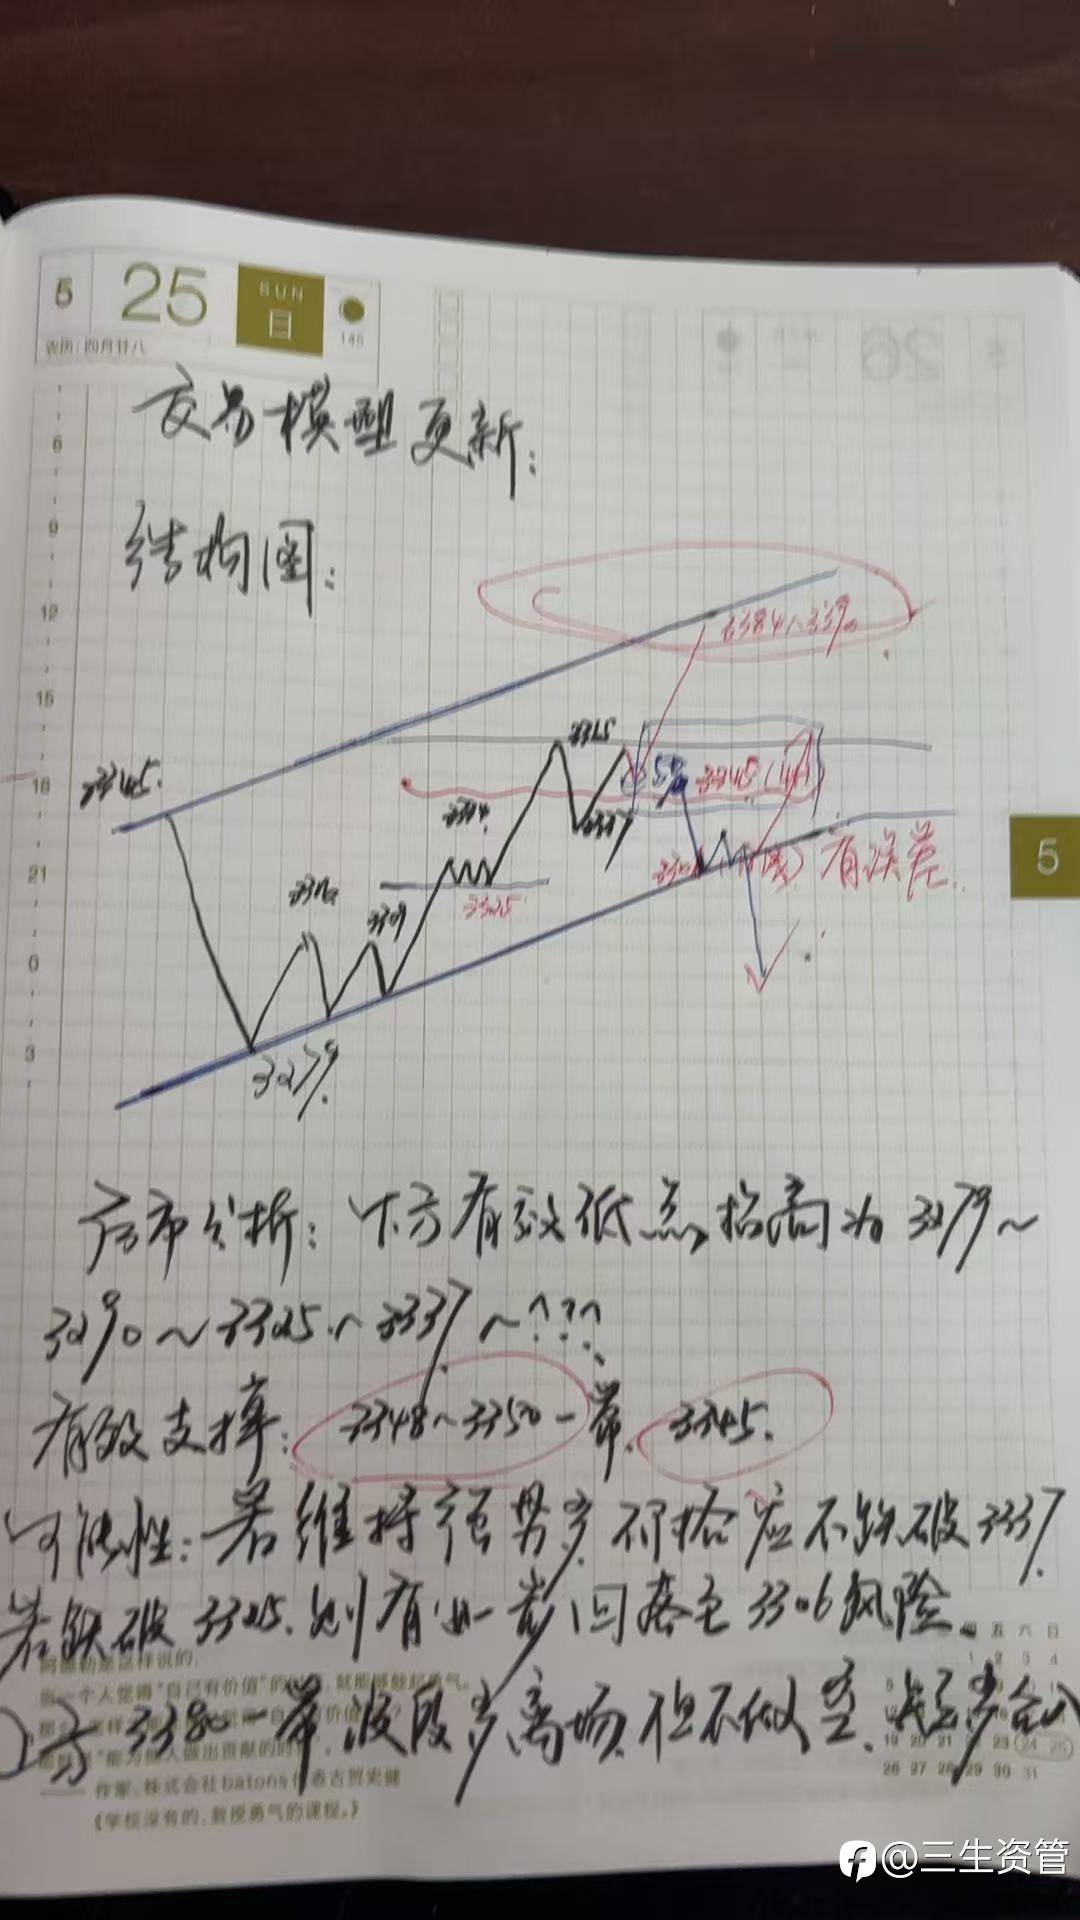 5
25
SUN
日
农历:四月廿八
145
26
交易模型更新:
结构图:
6
9
12
15
18
21
0
3
3345.
3279.
3309
3325
3375
3337
3345
有误差.
5
后市分析:下方有效低点抬高为3279~
3290~3325~3337~???
有效支撑:3348~3350一带. 3345.
可能性:若维持强势多 不应不跌破3337.
若跌破3325.则有进一步回落至3306风险。
上方3380一带波段多离场 但不做空.
当一个人觉得"自己有价值"的
就能够鼓起勇气。
作家、株式会社batons代表古贺史健
《学校没有的,教授勇气的课程。》
五 六 日
19 20 21 22 23 24 25
26 27 28 29 30 31
@三生资管